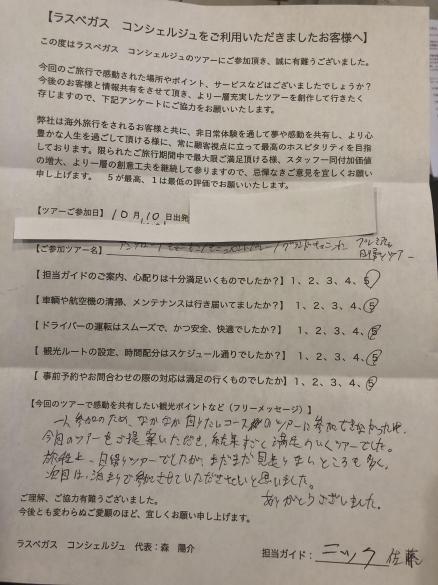 【ラスベガス　コンシェルジュをご利用いただきましたお客様へ】
この度はラスベガス　コンシェルジュのツアーにご参加頂き、誠に有難うございました。
今回のご旅行で感動された場所やポイント、サービスなどはございましたでしょうか？
今後のお客様と情報共有をさせて頂き、より一層充実したツアーを創作して行きたく
存じますので、下記アンケートにご協力をお願いいたします。
弊社は海外旅行をされるお客様と共に、非日常体験を通して夢や感動を共有し、より心
豊かな人生を過ごして頂ける様に、常に顧客視点に立って最高のホスピタリティを目指
しております。限られたご旅行期間中で最大限ご満足頂ける様、スタッフ一同付加価値
の増大、より一層の創意工夫を継続して参りますので、忌憚なきご意見を宜しくお願い
申し上げます。　5が最高、1は最低の評価でお願いいたします。
【ツアーご参加日】10月10日出発
【ご参加ツアー名】 プレミアム
日帰りツアー
【担当ガイドのご案内、心配りは十分満足いくものでしたか？】1、2、3、4、5
【車輌や航空機の清掃、メンテナンスは行き届いてましたか？】1、2、3、4、5
【ドライバーの運転はスムーズで、かつ安全、快適でしたか？】1、2、3、4、5
【観光ルートの設定、時間配分はスケジュール通りでしたか？】1、2、3、4、5
【事前予約やお問合わせの際の対応は満足の行くものでしたか】1、2、3、4、5
【今回のツアーで感動を共有したい観光ポイントなど（フリーメッセージ）】
一人参加のため、なかなか回りたいコースのツアーに参加できなかった中、
今回のツアーをご提案いただき、結果すごく満足のいくツアーでした。
旅程上、日帰りツアーでしたが、まだまだ見足りないところも多く、
次回は泊まりで参加させていただきたいと思いました。
ありがとうございました。
ご理解、ご協力有難うございました。
今後とも変わらぬご愛顧のほど、宜しくお願い申し上げます。
ラスベガス　コンシェルジュ　代表：森　陽介
担当ガイド：ミック 佐藤